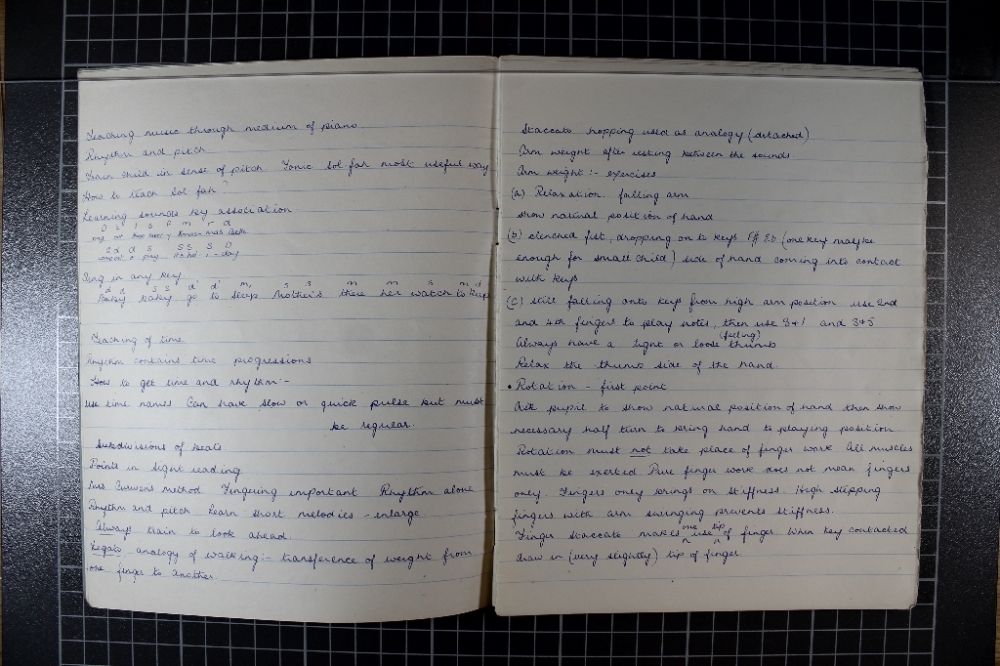 Teaching music through medium of piano
Rhythm and pitch
Train child in sense of pitch Tonic Sol fah most useful way
How to teach Sol fah?
Learning sounds by association
Sing in any key
s d s s d' d' m, s s m m s m d
Baby baby go to sleep Mother's there her watch to keep
Teaching of time
Rhythm contains time progressions
How to get time and rhythm:-
Use time names Can have slow or quick pulse but must
be regular.
Subdivisions of beats
Points in sight reading
Mrs Curwens method Fingering important Rhythm alone
Rhythm and pitch Learn short melodies - enlarge
Always train to look ahead
Legato analogy of walking:- transference of weight from
one finger to another.
Staccato hopping used as analogy (detached)
Arm weight after resting between the sounds
Arm weight:- exercises
(a) Relaxation. falling arm
show natural position of hand
(b) clenched fist, dropping on to keys (one key maybe
enough for small child) side of hand coming into contact
with keys
(c) still falling onto keys from high arm position use 2nd
and 4th fingers to play notes, then use 3+1 and 3+5
Always have a light or loose (feeling) thumb
Relax the thumb side of the hand.
• Rotation - first point
Ask pupil to show natural position of hand then show
necessary half turn to bring hand to playing position
Rotation must not take place of finger work All muscles
must be exerted Pure finger work does not mean fingers
only. Fingers only brings on stiffness. High stepping
fingers with arm swinging prevents stiffness.
Finger staccato makes one use tip of finger When key contacted
draw in (very slightly) tip of finger